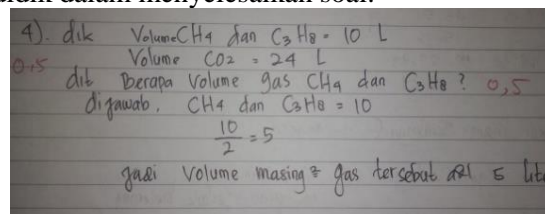 didik dalam menyelesaikan soal.
4). dik Volume CH4 dan C3H8 = 10 L
0,5 Volume CO2 = 24 L
dit Berapa Volume gas CH4 dan C3H8 ? 0,5
dijawab. CH4 dan C3H8 = 10
10/2 = 5
jadi Volume masing2 gas tersebut adl 5 lit